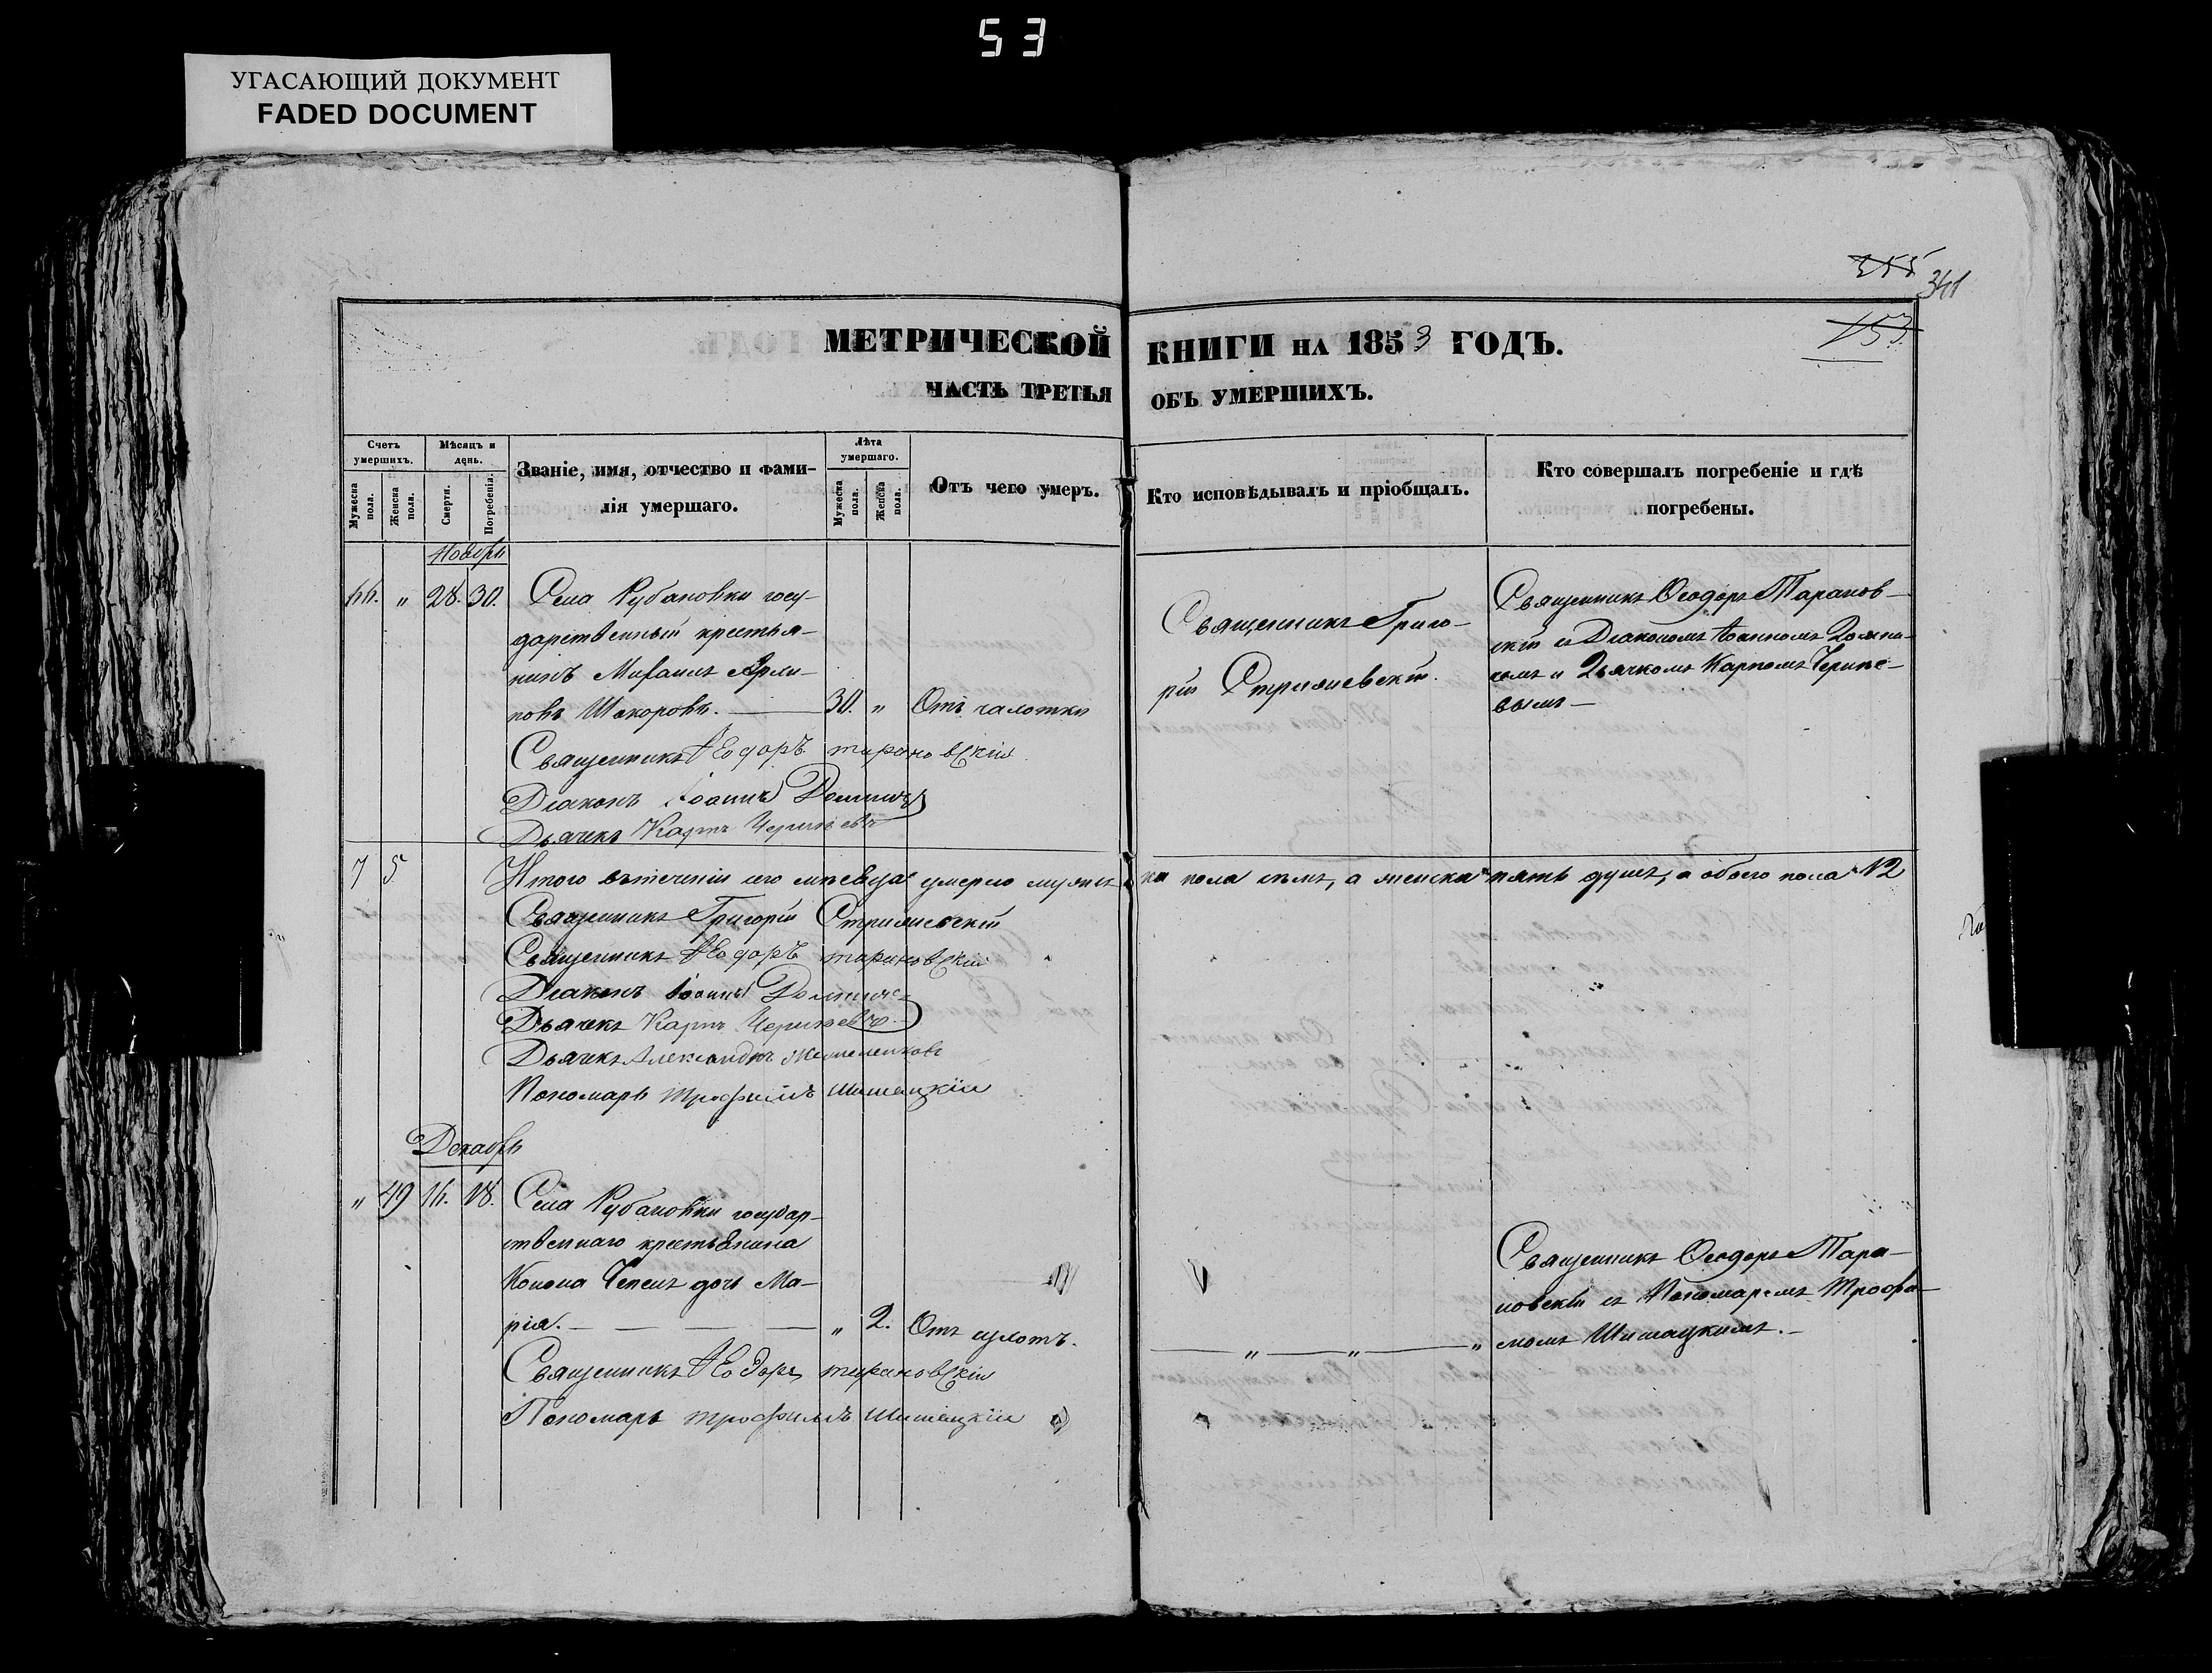 53
УГАСАЮЩИЙ ДОКУМЕНТ
FADED DOCUMENT
355
341
153
МЕТРИЧЕСКОЙ КНИГИ НА 1853 ГОДЪ.
ЧАСТЬ ТРЕТЬЯ ОБЪ УМЕРШИХЪ.
Счетъ умершихъ.
Мужеска пола.
Женска пола.
Мѣсяцъ и день.
Смерти.
Погребенія.
Званіе, имя, отчество и фами-
лія умершаго.
Лѣта умершаго.
Мужеска пола.
Женска пола.
Отъ чего умеръ.
Кто исповѣдывалъ и пріобщалъ.
Кто совершалъ погребеніе и гдѣ
погребены.
Ноябрь
66. " 28. 30. Села Рубановки госу-
дарственный крестья-
нинъ Михаилъ
новъ Шокоровъ. — 30. " Отъ чахотки
Священникъ Григо-
рій Стрижевскій.
Священникъ Ѳеодоръ Таранов-
скій съ Діакономъ Іоанномъ
и Дьячкомъ Карпомъ Черине-
вымъ —
Священникъ Ѳеодоръ Тарановскій
Діаконъ Іоаннъ
Дьячекъ Карпъ Чериневъ
7 5 Итого втеченіи сего мѣсяца умерло мужеска пола семь, а женска пять душъ, а обоего пола 12
Священникъ Григорій Стрижевскій
Священникъ Ѳеодоръ Тарановскій
Діаконъ Іоаннъ
Дьячекъ Карпъ Чериневъ
Дьячекъ Александръ
Пономарь Трофимъ Шишацкій
Декабрь
" 49 16. 18. Села Рубановки государ-
ственнаго крестьянина
Конона Чепель дочь Ма-
рія. — — — — " 2. Отъ
— " — " — "
Священникъ Ѳеодоръ Тара-
новскій съ Пономаремъ Трофи-
момъ Шишацкимъ. —
Священникъ Ѳеодоръ Тарановскій
Пономарь Трофимъ Шишацкій